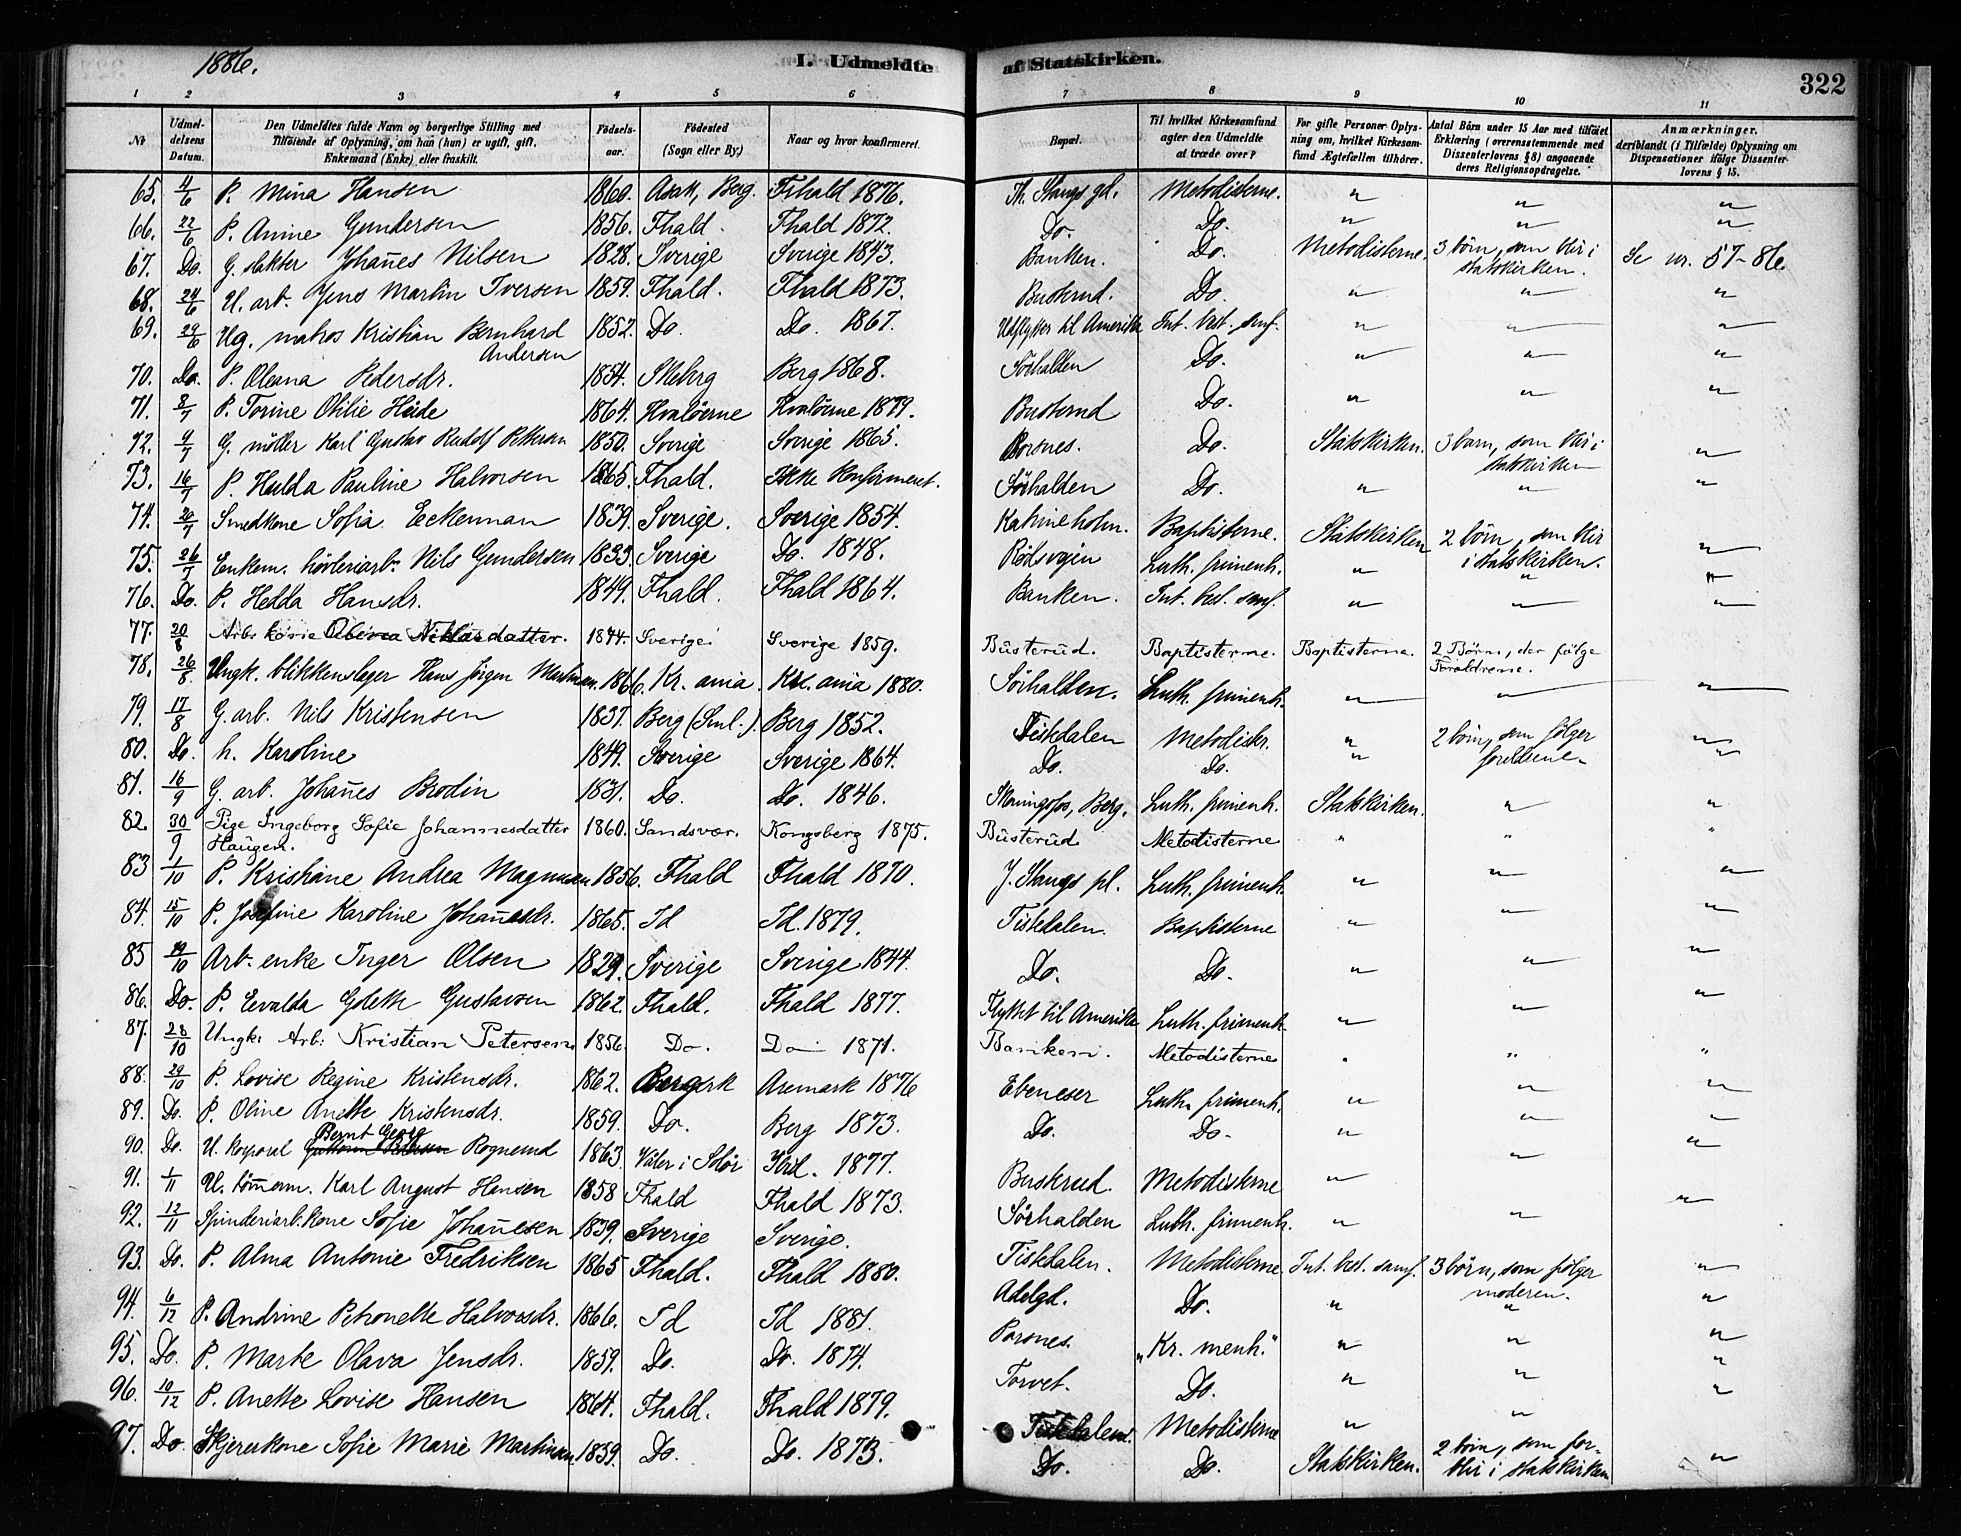 1886.
I. Udmeldte af Statskirken.
322
1 2 3 4 5 6 7 8 9 10 11
№ | Udmeldelsens Datum. | Den Udmeldtes fulde Navn og borgerlige Stilling med Tilføiende af Oplysning, om han (hun) er ugift, gift, Enkemand (Enke) eller fraskilt. | Fødselsaar. | Fødested (Sogn eller By.) | Naar og hvor konfirmeret. | Bopæl. | Til hvilket Kirkesamfund agter den Udmeldte at træde over? | For gifte Personer Oplysning om, hvilket Kirkesamfund Ægtefællen tilhører. | Antal Børn under 15 Aar med tilføiet Erklæring (overensstemmende med Dissenterlovens § 8) angaaende deres Religionsopdragelse. | Anmærkninger, deriblandt (i Tilfælde) Oplysning om Dispensationer ifølge Dissenterlovens § 15.
65. 4/6 P. Mina Hansen 1860. Asak, Berg. Fthald 1876. Th. Stangs gd. Metodisterne. " " "
66. 22/6 P. Anine Gundersen 1856. Fhald. Fhald 1872. Do. Do. " " "
67. Do. G. slakter Johañes Nilsen 1828. Sverige Sverige 1843. Banken. Do. Metodisterne. 3 börn, som blir i statskirken. Se nr. 57-86.
68. 24/6 U. arb. Jens Martin Iversen 1859. Fhald. Fhald 1873. Busterud. Do. " " "
69. 29/6 Ug. matros Kristian Bernhard Andersen 1852. Do. Do. 1867. Udflyttet til Amerika Int. best. smf. " " "
70. Do. P. Oleana Pedersdr. 1854. Berg 1868. Sörhalden Do. " " "
71. 8/7 P. Torine Otilie Heide 1864. Hvalöerne Hvalöerne 1879. Busterud Do. " " "
72. 9/7 G. möller Karl Gustav Rudolf Pettersen 1850. Sverige Sverige 1865. Porsnes. Do. Statskirken. 3 barn, som blir i statskirken "
73. 16/7 P. Hulda Pauline Halvorsen 1865. Fhald. Ikke konfirmeret. Sörhalden Do. " " "
74. 20/7 Smedkone Sofia Eckerman 1839. Sverige. Sverige 1854. Katrineholm. Baptisterne. Statskirken 2 börn, som blir i statskirken. "
75. 26/7 Enkem. hövleriarb. Nils Gundersen 1833. Sverige Do. 1848. Rödsvejen Luth. frimenh. " " "
76. Do. P. Hedda Hansdr. 1849. Fhald. Fhald 1864. Banken. Int. best. smf. " " "
77. 20/8 Arb: kone Niklasdatter. 1844. Sverige. Sverige 1859. Busterud. Baptisterne. Baptisterne. 2 Börn, der fölge Forældrene.
78. 26/8 Ungk. blikkenslager Hans Jörgen Martinsen. 1866. Kr. ania. Kr. ania 1880. Sörhalden. Luth. frimenh. " " "
79. 17/8 G. arb. Nils Kristensen 1837. Berg (Sml.) Berg 1852. Tistedalen Metodistr. " 2 börn, som fölger foreldrene. "
80. Do. h. Karoline 1849. Sverige Sverige 1864. Do. Do. " "
81. 16/9 G. arb. Johañes Brodin 1831. Do. Do. 1846. Skoningsfos, Berg. Luth. frimenh. Statskirken. " "
82. 30/9 Pige Ingeborg Sofie Johannesdatter Haugen. 1860. Sandsvær. Kongsberg 1875. Busterud. Metodisterne " " "
83 1/10 P. Kristiane Andrea Magnusen 1856. Fhald Fhald 1870. J. Stangs pl. Luth. frimenh. " " "
84. 15/10 P. Josefine Karoline Johañesdr. 1865. Id Id. 1879. Tistedalen. Baptisterne " " "
85 19/10 Arb. enke Inger Olsen 1829. Sverige Sverige 1844. Do. Do. " " "
86. Do. P. Evalda Goleth Gustavsen 1862. Fhald. Fhald 1877. Flyttet til Amerika Luth. frimenh. " " "
87. 28/10 Ungk: Arb: Kristian Petersen. 1856. Do. Do 1871. Banken. Metodisterne " " "
88. 29/10 P. Lovise Regine Kristensdr. 1862. Aremark 1876 Ebeneser Luth. frimenh. " " "
89. Do. P. Oline Anette Kristensdr. 1859. Do. Berg 1873. Do. Do. " " "
90. Do. U. korporal Bernt Georg Rognerud 1863. Våler i Solör 1877. Buskrud. Metodisterne " " "
91. 1/11 U. tömerm. Karl August Hansen 1858 Fhald Fhald 1873. Sörhalden Luth. frimenh. " " "
92. 12/11 Spinderiarb.kone Sofie Johañesen 1839. Sverige Sverige. Tistedalen. Metodisterne. Int. best. samf. 3 börn, som fölger moderen. "
93. Do. P. Alma Antonie Fredriksen 1865 Fhald. Fhald 1880. Adelgd. Do. " " "
94. 6/12 P. Andrine Petronelle Halvorsdr. 1866. Id Id 1881. Porsnes. "Kr. menh." " " "
95. Do. P. Marte Olava Jensdr. 1859. Do. Do. 1874. Torvet. Do. " " "
96. 10/12 P. Anette Lovise Hansen 1864. Fhald. Fhald 1879. Tistedalen. Metodisterne " " "
97. Do. Skjærerkone Sofie Marie Martinsen 1859. Do. Do. 1873. Do. Do. Statskirken. 2 börn, som forblir i statskirken "